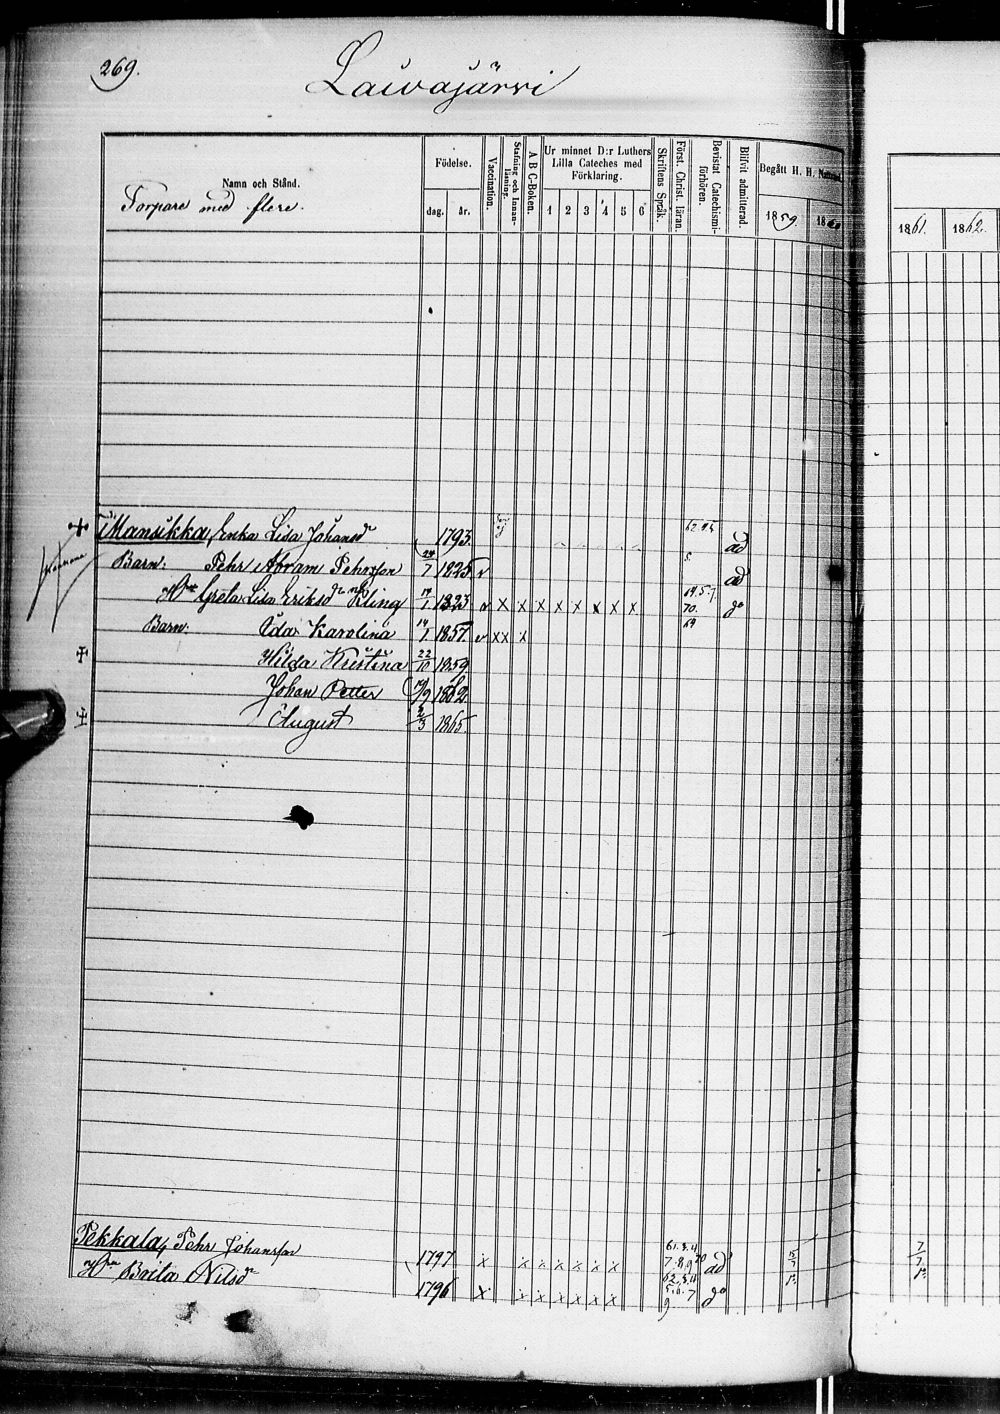 269.
Laivajärvi
Namn och Stånd.
Torpare med flere.
Födelse.
dag. år.
Vaccination.
Stafning och Innanläsning.
A B C-Boken.
Ur minnet D:r Luthers Lilla Cateches med Förklaring.
1 2 3 4 5 6
Skriftens Språk.
Först. Christ. läran.
Bevistat Catechismiförhören.
Blifvit admitterad.
Begått H. H.
1859. 1860
1861. 1862.
Mansikka, Enka Lisa Johansdr 1793. ad
Barn: Pehr Abram Pehrsson 24/7 1825 v ad
Hu Greta Lisa Eriksdr Kling 1823 v x x x x x x x x x 70. do
Barn: Ida Karolina 14/1 1857. v xx x 69
Hilda Kristina 22/10 1859
Johan Petter 1862
August 2/3 1865.
Pekkala, Pehr Johansson 1797 x x x x x x x ad
Hu Brita Nilsdr 1796 x x x x x x x do